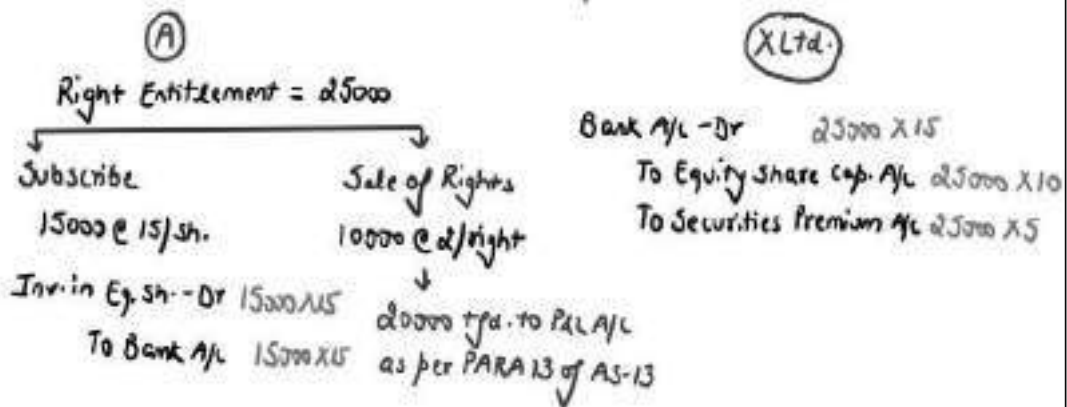 A
Right Entitlement = 25000
Subscribe
15000 @ 15/sh.
Inv. in Eq. Sh. - Dr 15000X15
To Bank A/c 15000X15
Sale of Rights
10000 @ 2/right
20000 tfd. to P&L A/c
as per PARA 13 of AS-13
X Ltd.
Bank A/c - Dr 25000 X 15
To Equity Share Cap. A/c 25000 X 10
To Securities Premium A/c 25000 X 5